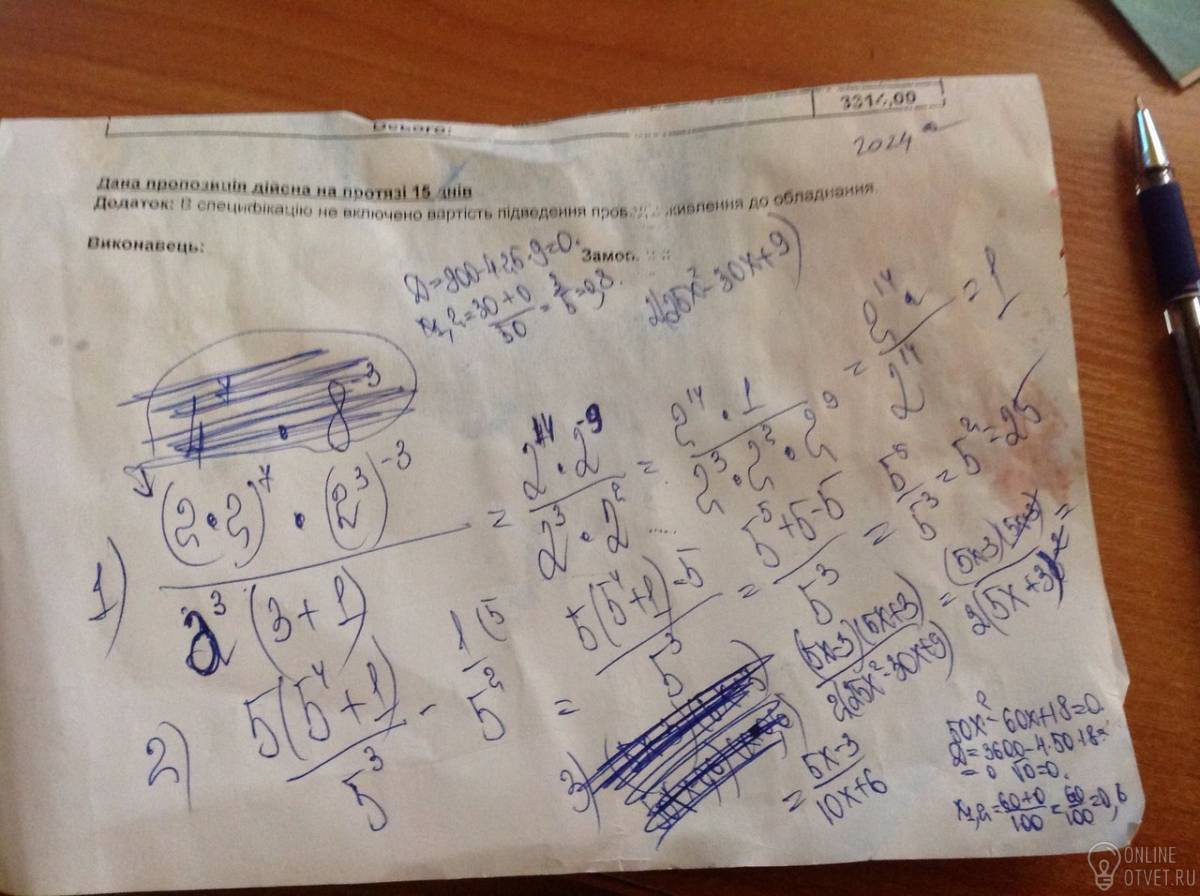 Всього: 3314,00
2024
Дана пропозиція дійсна на протязі 15 днів
Додаток: В специфікацію не включено вартість підведення живлення до обладнання.
Виконавець: Замов.
Д=900-4·25·9=0.
x₁,₂=30+0/50=3/5=0,8.
2(25x²-30x+9)
4⁷·8⁻³
1) (2·2)⁷·(2³)⁻³/2³(3+1) = 2¹⁴·2⁻⁹/2³·2² = 2¹⁴·1/2³·2²·2⁹ = 2¹⁴/2¹⁴ = 1
2) 5(5⁴+1)/5³ - 1/5² (5 = 5(5⁴+1)-5/5³ = 5⁵+5-5/5³ = 5⁵/5³ = 5² = 25
3) (5x-3)(5x+3)/2(25x²-30x+9) = (5x-3)/2(5x+3) =
= 5x-3/10x+6
50x²-60x+18=0.
Д=3600-4·50·18=
=0 √0=0.
x₁,₂=60+0/100=60/100=0,6
ONLINE
OTVET.RU